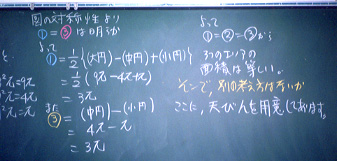 図の対称性より
①=③は明らか
よって
①=1/2{(大円)-(中円)+(小円)}
=1/2(9π-4π+π)
=3π
また
③=(中円)-(小円)
=4π-π
=3π
と
²π=9π
²π=4π
²π=π
よって
①=②=③が
3つのエリアの
面積は等しい。
そこで、別の考え方はないか
ここに、天びんを用意しております。